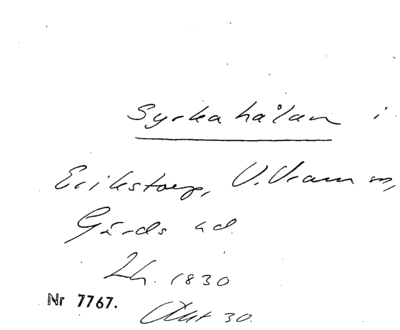 Syrkahålan i
Erikstorp, V. Vram sn,
Gärds hd.
Lh. 1830
Nr 7767.
Akt 30.